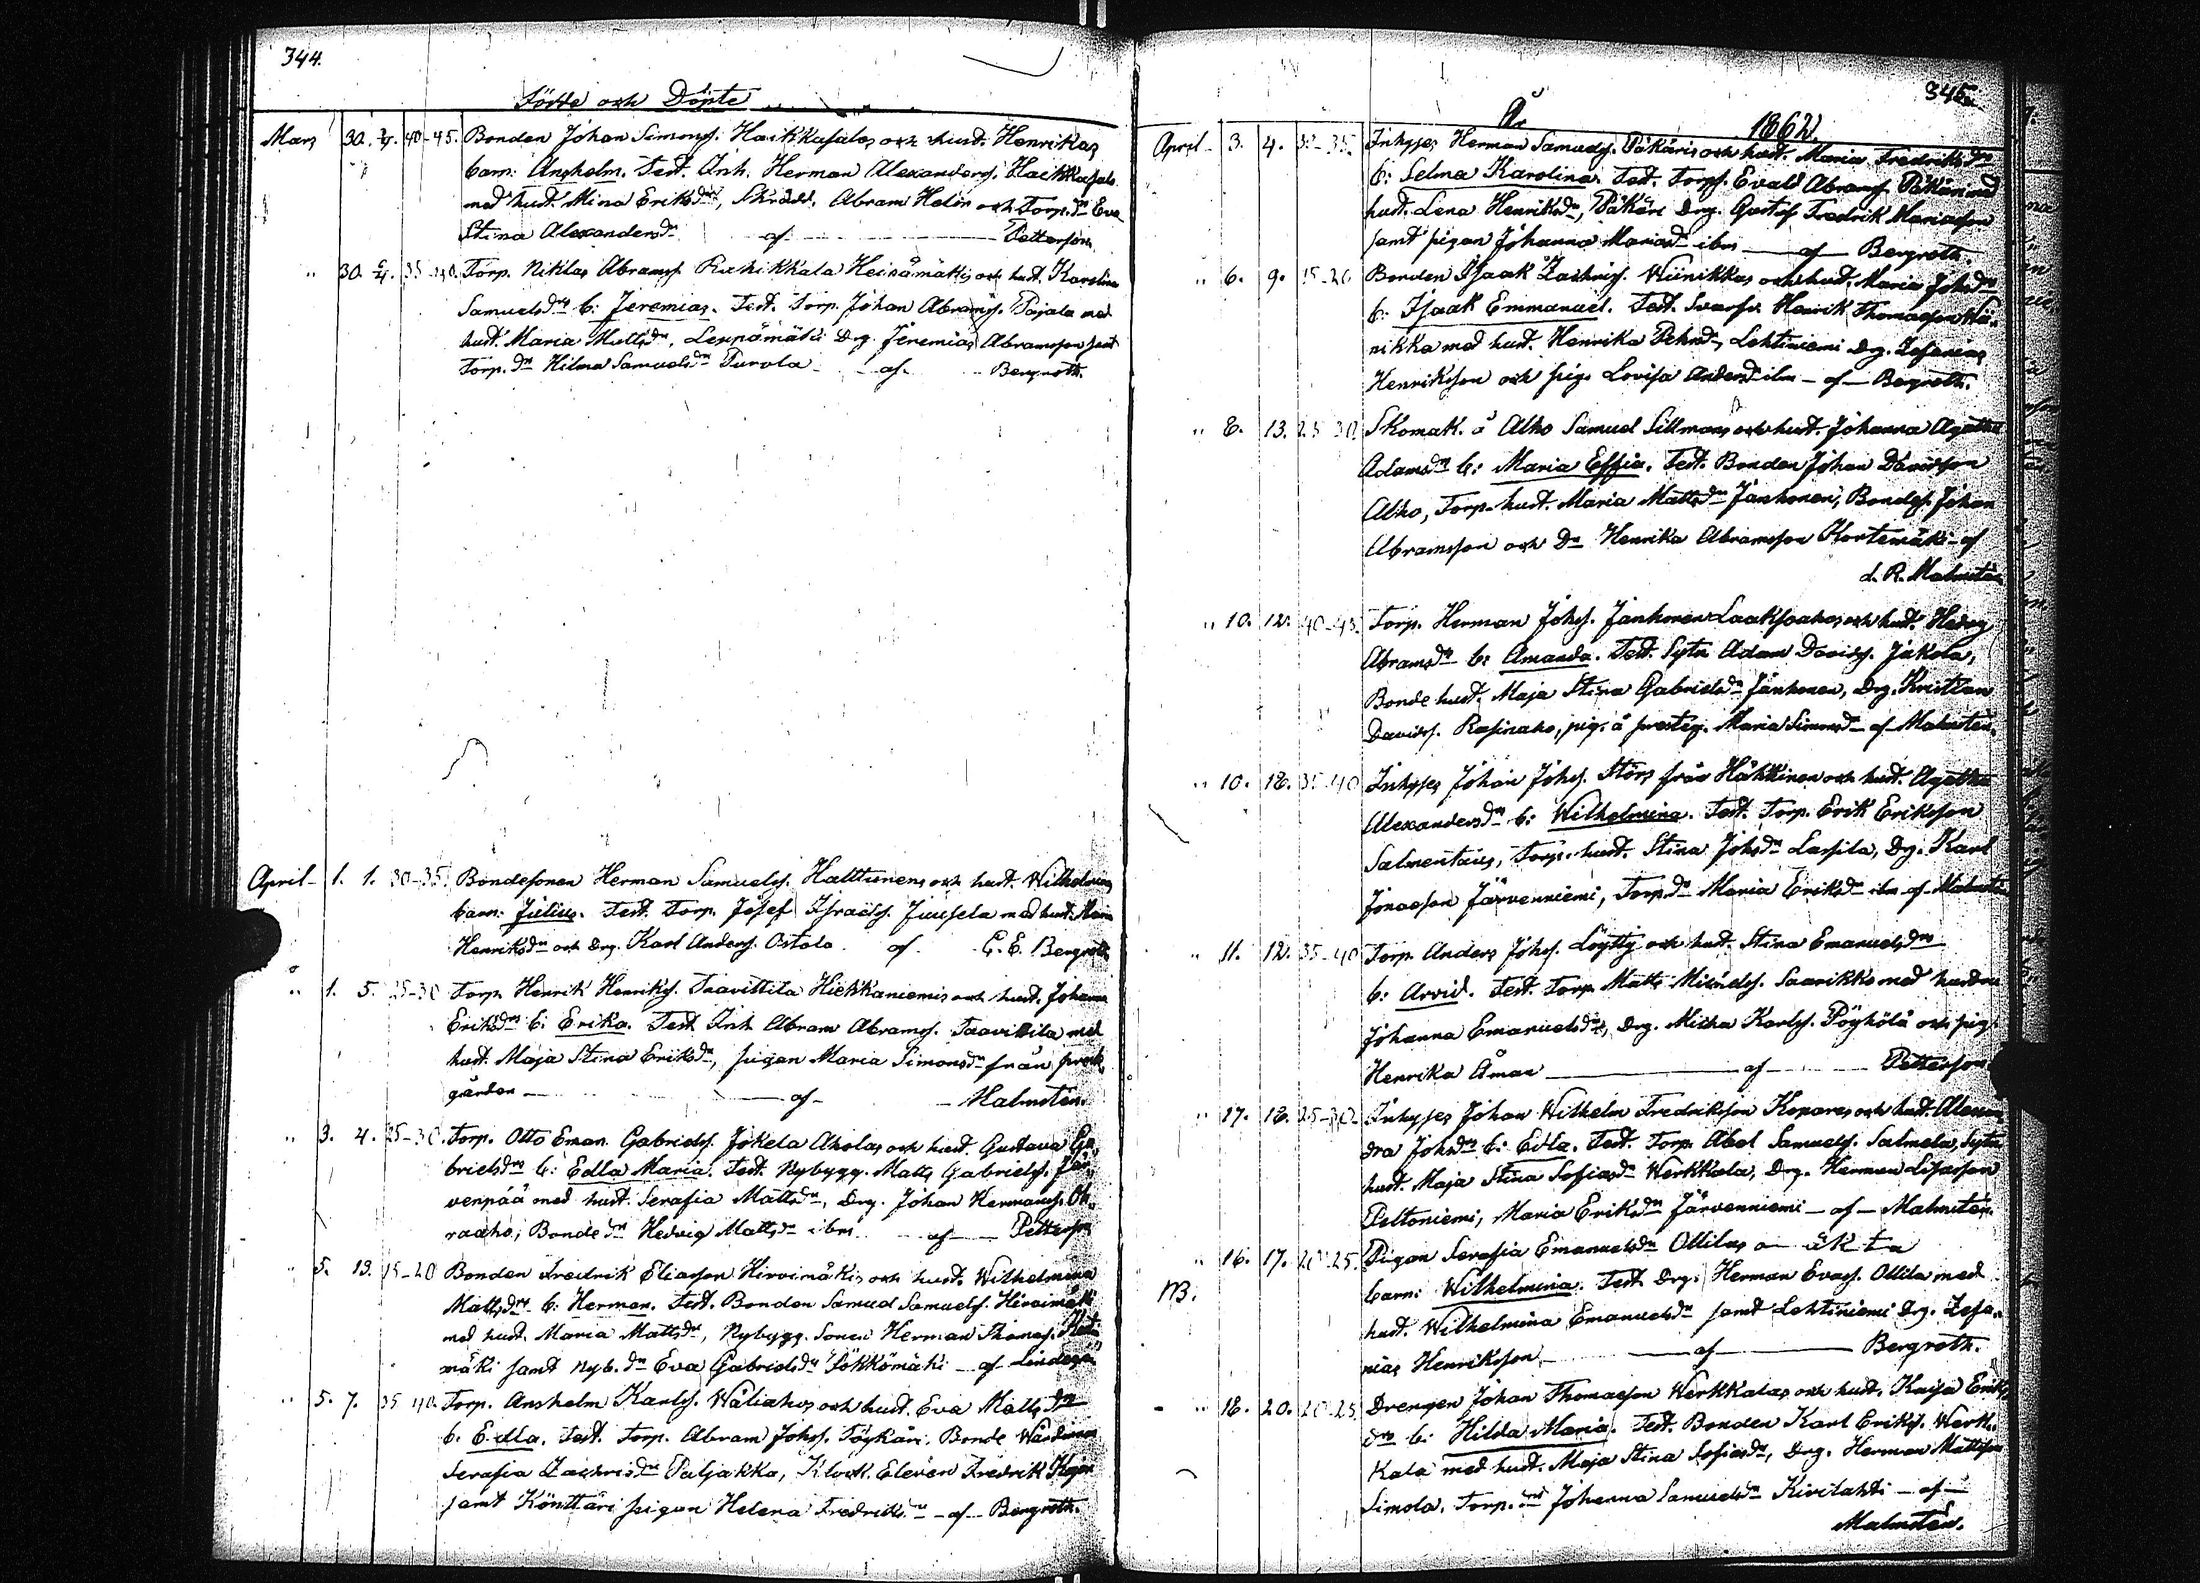 344.
Födde och Döpte
Mars 30. 2/4. 40-45. Bonden Johan Simonss. Haikkasalos och hust. Henrikas
barn: Ansholm. Test. Inh. Herman Alexanderss. Haikkasalo
med hust. Mina Eriksdr, Skrädd. Abram Helin och Torp.dr Eva
Stina Alexandersdr af Petterson
" 30. 35-40. Torp. Niklas Abramss. Heinämäkis och hust. Karolina
Samuelsdrs b: Jeremias. Test. Torp. Johan Abramss. Pajala med
hust. Maria Mattsdr, Leppämäki Drg. Jeremias Abramsson samt
Torp.dr Hilma Samuelsdr Purola af Bergroth.
April 1. 1. 30-35. Bondesonen Herman Samuelss. Halttunens och hust. Wilhelminas
barn: Julius. Test. Torp. Josef Israelss. Juusela med hust. Maria
Henriksdr och Drg. Karl Anderss. Ostola af G. E. Bergroth
" 1. 5. 25-30 Torp. Henrik Henrikss. Taavittila Hiekkaniemis och hust. Johanna
Eriksdrs b: Erika. Test. Inh. Abram Abramss. Taavittila med
hust. Maja Stina Eriksdr, pigan Maria Simonsdr från prest
gården af Malmstén.
" 3. 4. 25-30. Torp. Otto Eman. Gabrielss. Jokela Aholas och hust. Gustava Ga
brielsdrs b: Edla Maria. Test. Nybygg. Matts Gabrielss. Jär
venpää med hust. Serafia Mattsdr, Drg. Johan Hermanss. Ok
raaho, Bondedr Hedvig Mattsdr ibm af Petterson
" 5. 13. 15-20 Bonden Fredrik Eliasson Hirvimäkis och hust. Wilhelmina
Mattsdrs b: Herman. Test. Bonden Samuel Samuelss. Hirvimäki
med hust. Maria Mattsdr, Nybygg. Sonen Herman Thomass.
mäki samt Nyb.dr Eva Gabrielsdr Sökkömäki af Lindegrén
" 5. 7. 35-40. Torp. Ansholm Karlss. Wäliahos och hust. Eva Mattsdrs
b. Edla. Test. Torp. Abram Johss. Töykäri, Bonde
Serafia Zachrisdr Paljakka, Klock. Eleven Fredrik
samt Könttäri pigan Helena Fredriksdr af Bergroth.
345.
År 1862
April 3. 4. 30-35. Inhyses Herman Samuelss. Päkäris och hust. Maria Fredriksdrs
b: Selma Karolina. Test. Torps. Evald Abramss. Päkäri med
hust. Lena Henriksdr, Päkäri Drg. Gustaf Fredrik Mariasson
samt pigan Johanna Mariasdr ibm af Bergroth.
" 6. 9. 15-20 Bonden Isaak Zachriss. Wiinikkas och hust. Maria Johsdrs
b: Isaak Emmanuel. Test. Svarfv. Henrik Thomasson Wii
nikka med hust. Henrika, Lehtiniemi Drg. Zefanias
Henriksson och pig. Lovisa Andersdr ibm af Bergroth.
" 8. 13. 25-30. Skomak. å Alho Samuel Sillmans och hust. Johanna Agatha
Adamsdrs b: Maria Effia. Test. Bonden Johan Davidsson
Alho, Torp. hust. Maria Mattsdr Jänkonen, Bondes. Johan
Abramsson och Dr Henrika Abramsson Kortemäki af
d. R. Malmstén
" 10. 12. 40-45. Torp. Herman Johss. Jänkonen Laaksoahos och hust. Hedvig
Abramsdrs b: Amanda. Test. Sytn Adam Davidss. Jakola,
Bonde hust. Maja Stina Gabrielsdr Jänkonen, Drg. Kristian
Davidss. Rasinaho, pig. å prestg. Maria Simonsdr af Malmstén.
" 10. 18. 35-40 Inhyses Johan Johss. Störs från Häkkinen och hust. Agatha
Alexandersdrs b: Wilhelmina. Test. Torp. Erik Eriksson
Salmentaus, Torp. hust. Stina Johsdr Lassila, Drg. Karl
Jonasson Järvenniemi, Torp.dr Maria Eriksdr ibm af Malmstén
" 11. 12. 35-40 Torp. Anders Johss. Löytty och hust. Stina Emanuelsdrs
b: Arvid. Test. Torp. Matts Michelss. Saarikko med hustru
Johanna Emanuelsdr, Drg. Micka Karlss. Pöyhölä och pig.
Henrika Åman af Petterson
" 17. 18. 25-30. Inhyses Johan Wilhelm Fredriksson Kopares och hust. Alexan
dra Johsdrs b: Edla. Test. Torp. Abel Samuelss. Salmela, Sytn
hust. Maja Stina Sofiasdr Werkkala, Drg. Herman Lisasson
Peltoniemi, Maria Eriksdr Järvenniemi af Malmstén.
" 16. 17. 20-25. Pigan Serafia Emanuelsdr Ollilas oäkta
NB. barn: Wilhelmina. Test. Drg. Herman Evass. Ollila med
hust. Wilhelmina Emanuelsdr samt Lehtiniemi Drg. Zefa
nias Henriksson af Bergroth.
" 18. 20. 20-25. Drengen Johan Thomasson Werkkalas och hust. Kaisa Eriks
drs b: Hilda Maria. Test. Bonden Karl Erikss. Werk
kala med hust. Maja Stina Sofiasdr, Drg. Herman Mattsson
Simola, Torp.dr Johanna Samuelsdr Kivilahti af
Malmstén.